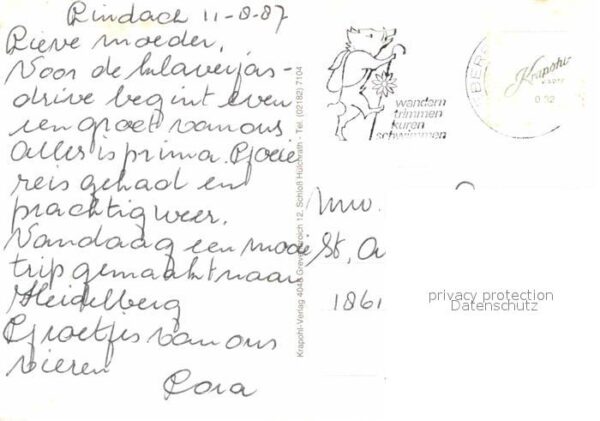 Lindach 11-8-87
Lieve moeder,
Voor de klaverjas-
drive begint even
een groet van ons
Alles is prima. Goeie
reis gehad en
prachtig weer.
Vandaag een mooie
trip gemaakt naar
Heidelberg
Groetjes van ons
vieren
Cora
Krapohl-Verlag 4048 Grevenbroich 12, Schloß Hülchrath - Tel. (02182) 7104
wandern
trimmen
kuren
schwimmen
EBER
Krapohl
KARTE
0.92
Mw.
St,
1861
privacy protection
Datenschutz